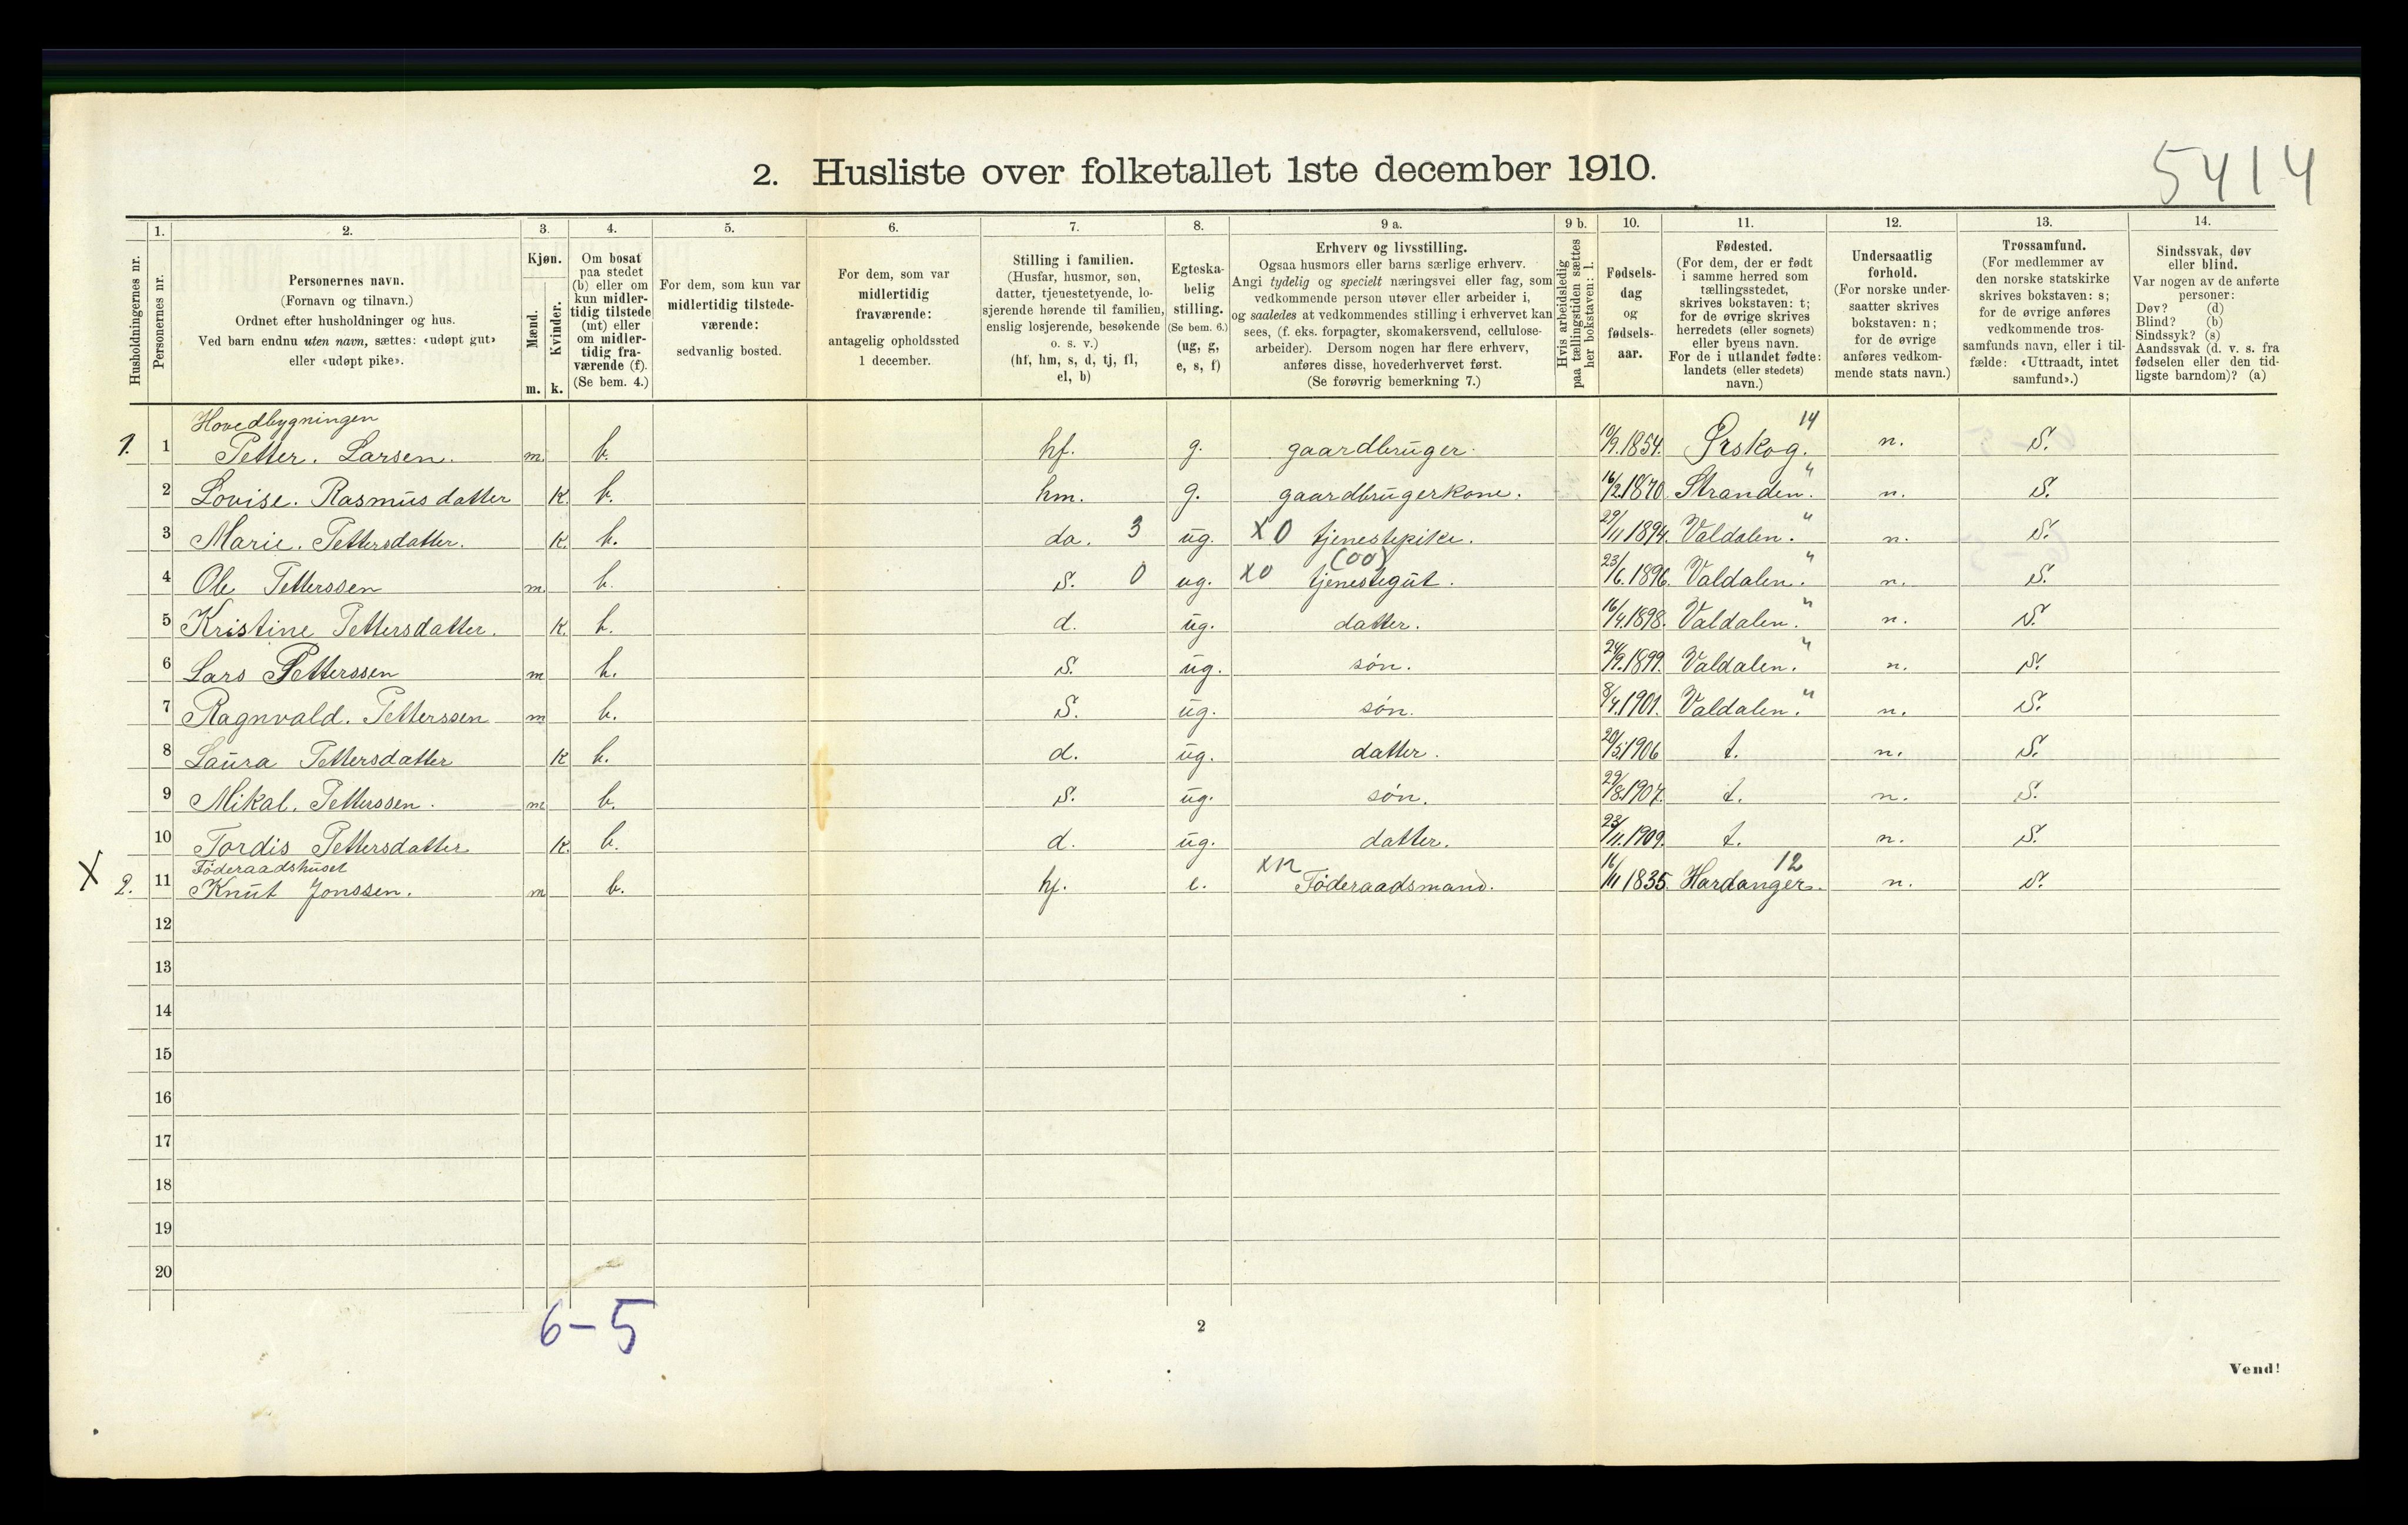 5414
2. Husliste over folketallet 1ste december 1910.
1. 2. 3. 4. 5. 6. 7. 8. 9 a. 9 b. 10. 11. 12. 13. 14.
Husholdningernes nr.
Personernes nr.
Personernes navn.
(Fornavn og tilnavn.)
Ordnet efter husholdninger og hus.
Ved barn endnu uten navn, sættes: «udøpt gut»
eller «udøpt pike».
Kjøn.
Mænd.
Kvinder.
m. k.
Om bosat
paa stedet
(b) eller om
kun midler-
tidig tilstede
(mt) eller
om midler-
tidig fra-
værende (f).
(Se bem. 4.)
For dem, som kun var
midlertidig tilstede-
værende:
sedvanlig bosted.
For dem, som var
midlertidig
fraværende:
antagelig opholdssted
1 december.
Stilling i familien.
(Husfar, husmor, søn,
datter, tjenestetyende, lo-
sjerende hørende til familien,
enslig losjerende, besøkende
o. s. v.)
(hf, hm, s, d, tj, fl,
el, b)
Egteska-
belig
stilling.
(Se bem. 6.)
(ug, g,
e, s, f)
Erhverv og livsstilling.
Ogsaa husmors eller barns særlige erhverv.
Angi tydelig og specielt næringsvei eller fag, som
vedkommende person utøver eller arbeider i,
og saaledes at vedkommendes stilling i erhvervet kan
sees, (f. eks. forpagter, skomakersvend, cellulose-
arbeider). Dersom nogen har flere erhverv,
anføres disse, hovederhvervet først.
(Se forøvrig bemerkning 7.)
Hvis arbeidsledig
paa tællingstiden sættes
her bokstaven: l.
Fødsels-
dag
og
fødsels-
aar.
Fødested.
(For dem, der er født
i samme herred som
tællingsstedet,
skrives bokstaven: t;
for de øvrige skrives
herredets (eller sognets)
eller byens navn.
For de i utlandet fødte:
landets (eller stedets)
navn.)
Undersaatlig
forhold.
(For norske under-
saatter skrives
bokstaven: n;
for de øvrige
anføres vedkom-
mende stats navn.)
Trossamfund.
(For medlemmer av
den norske statskirke
skrives bokstaven: s;
for de øvrige anføres
vedkommende tros-
samfunds navn, eller i til-
fælde: «Uttraadt, intet
samfund».)
Sindssvak, døv
eller blind.
Var nogen av de anførte
personer:
Døv? (d)
Blind? (b)
Sindssyk? (s)
Aandssvak (d. v. s. fra
fødselen eller den tid-
ligste barndom)? (a)
Hovedbygningen 14
1. 1 Petter. Larsen. m b. hf. g. gaardbruger. 10/9.1854. Ørskog. n. S.
2 Lovise. Rasmusdatter K. b. hm. g. gaardbrugerkone. 16/2.1870. Stranden." n. S.
3 Marie. Pettersdatter. K. b. da. 3 ug. X 0 tjenestepike. 29/11 1894. Valdalen." n. S.
(00)
4 Ole Petterssen m b. S. 0 ug. X0 tjenestegut. 23/6.1896. Valdalen." n. S.
5 Kristine Pettersdatter. K. b. d. ug. datter. 16/4.1898. Valdalen." n. S.
6 Lars Petterssen m b. S. ug. søn. 24/9.1899. Valdalen." n. S.
7 Ragnvald. Petterssen m b. S. ug. søn. 8/4.1901. Valdalen." n. S.
8 Laura Pettersdatter K b. d. ug. datter. 20/5.1906 t. n. S.
9 Mikal. Petterssen. m b. S. ug. søn. 29/8.1907. t. n. S.
10 Tordis Pettersdatter K. b. d. ug. datter. 23/11.1909. t. n. S.
X Føderaadshuset xn 12
2. 11 Knut Jonssen. m b. hf. e. Føderaadsmand. 16/11 1835. Hardanger. n. S.
12
13
14
15
16
17
18
19
20
6-5
2
Vend!